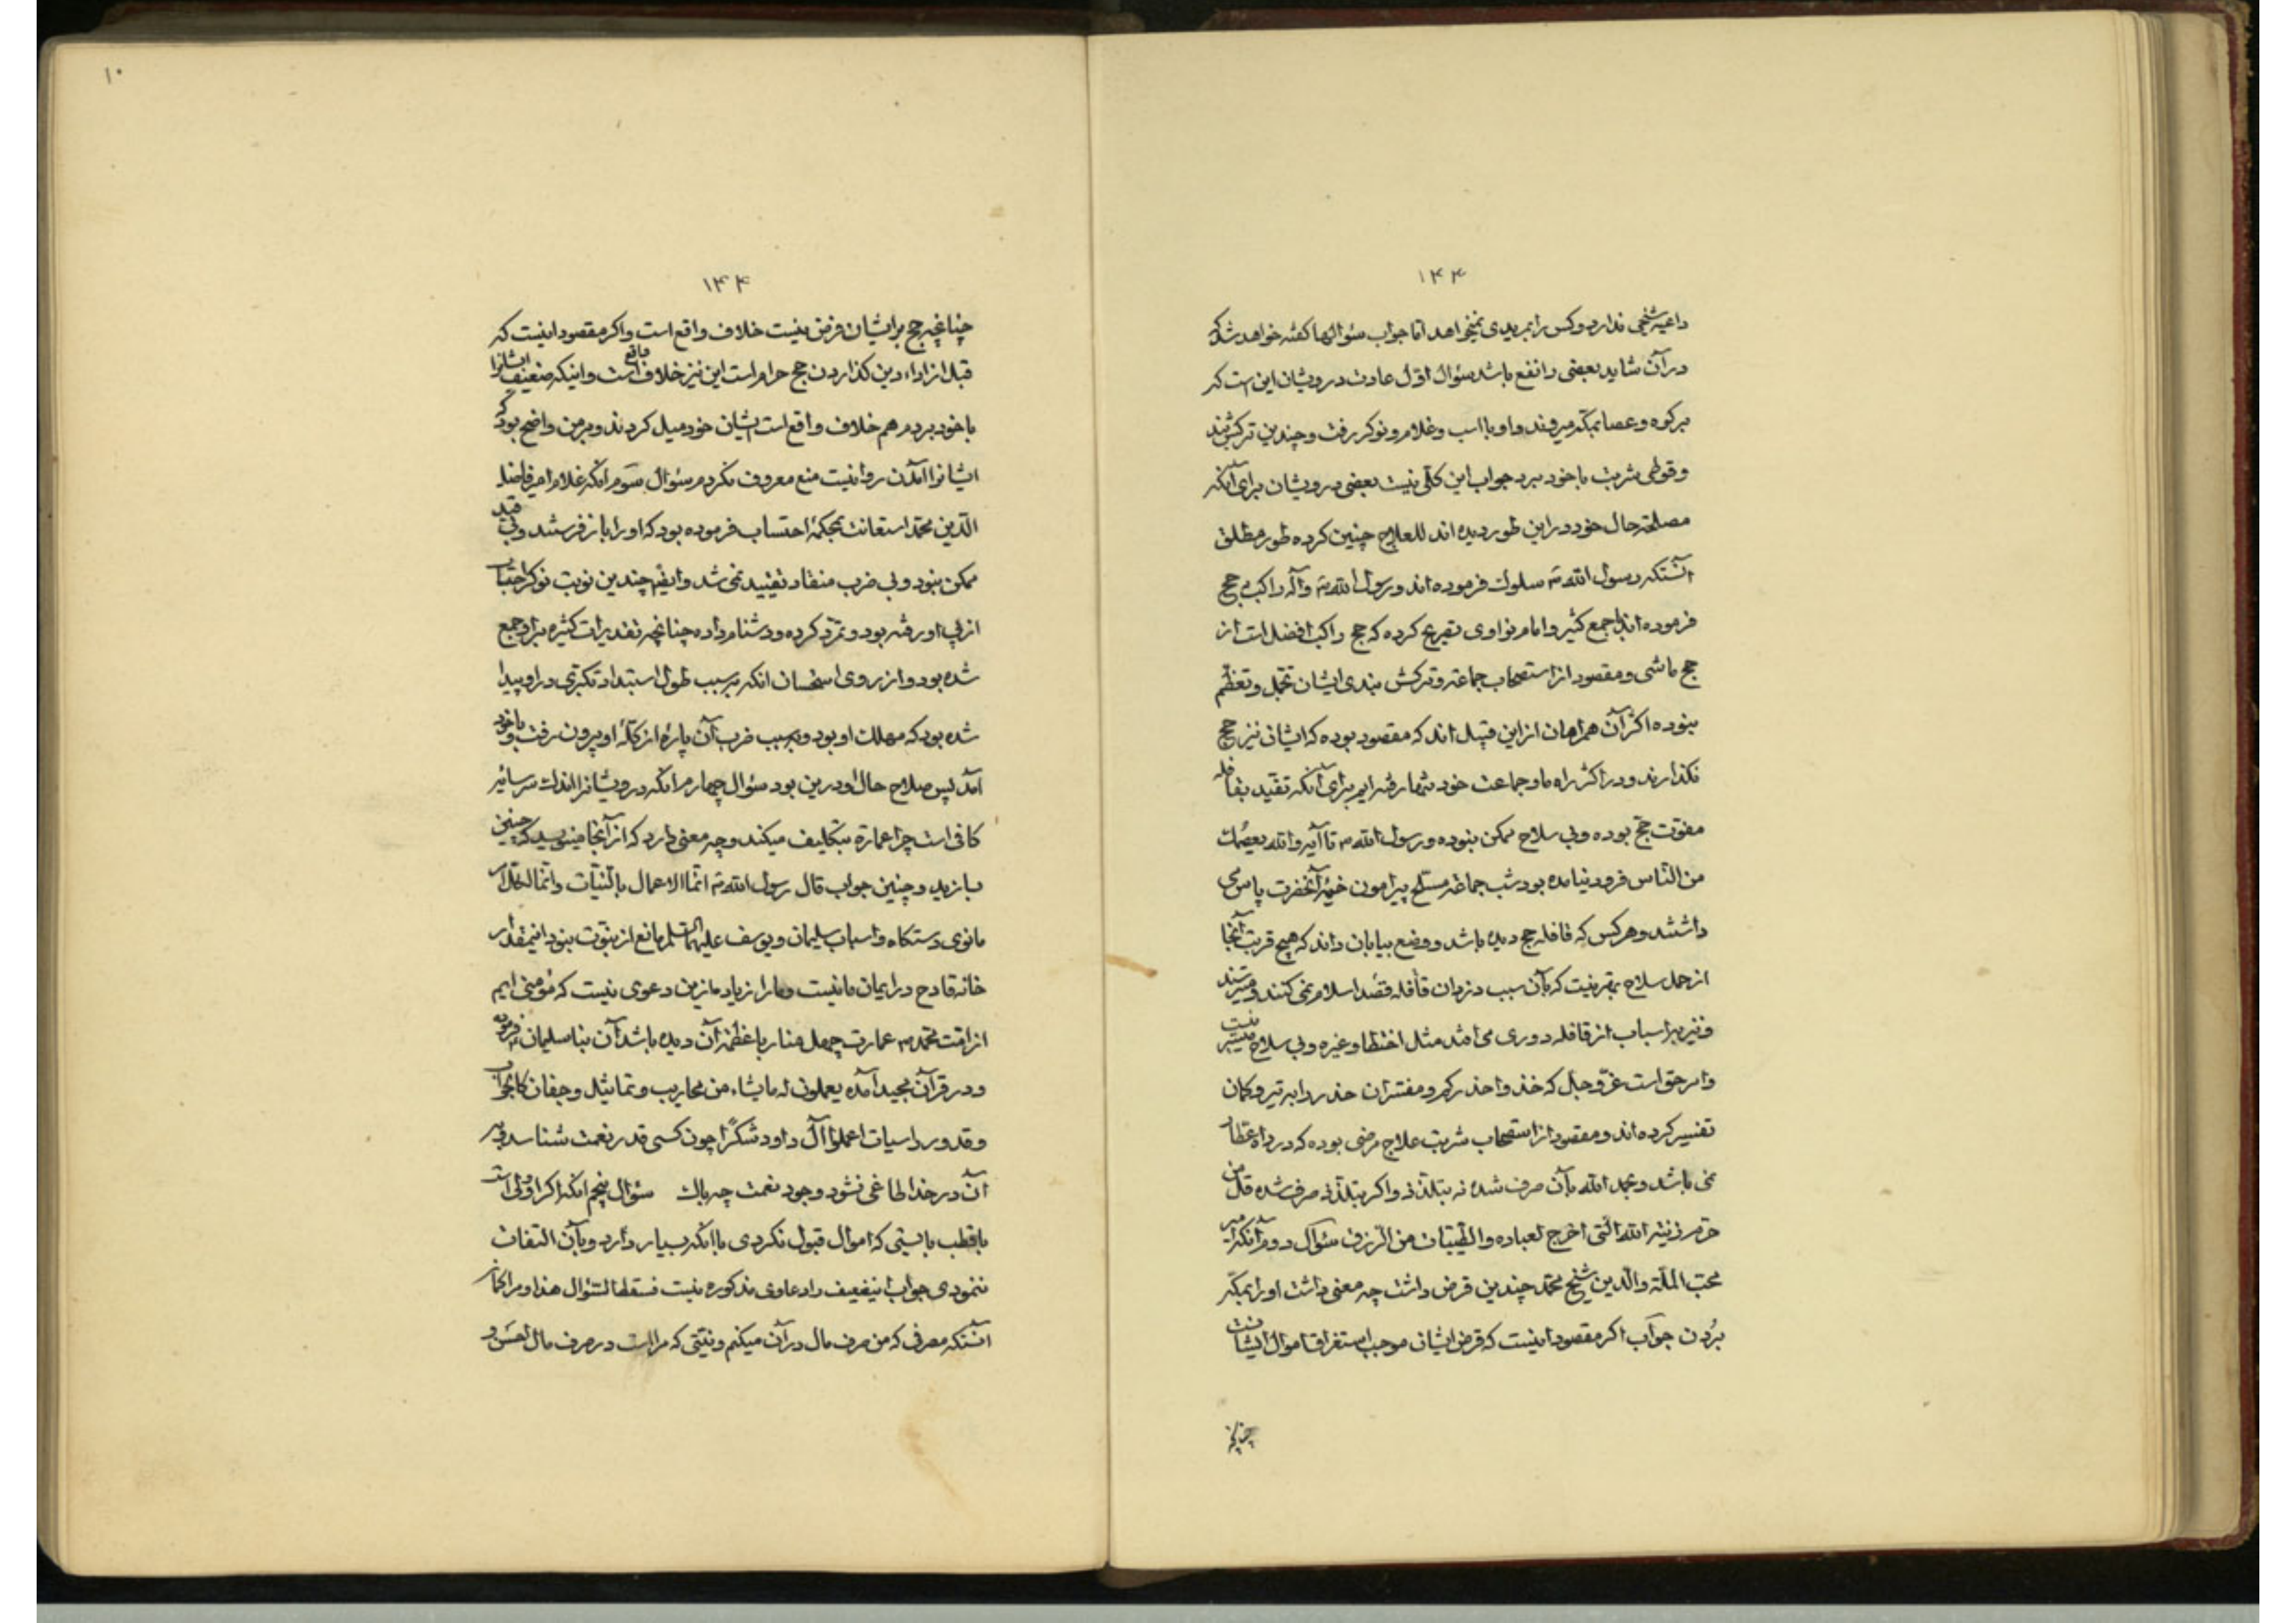 ۱۴۳
داعیه شیخی ندارد و کس را بمریدی نمیخواهد اما جواب سؤالها کفته خواهد شد که
در آن شاید بعضی را نفع باشد سؤال اول عادت درویشان این است که
برکوه و عصا بمکه میروند و او با اسب و غلام و نوکر رفت و چندین ترکش بند
و قوطی شربت با خود برد جواب این کلی نیست بعضی درویشان برای آنکه
مصلحة حال خود در این طور دیده اند للعلاج چنین کرده طور مطلق
آنستکه رسول الله سلوک فرموده اند و رسول الله و آله راکب حج
فرموده اند با جمع کثیر و امام نواوی تصریح کرده که حج راکب افضل است از
حج ماشی و مقصود از استصحاب جماعة و ترکش بندی ایشان تجمل و تعظم
نبوده اکثر آن همراهان از این قبیل اند که مقصود بوده که ایشان نیز حج
بکذارند و در اکثر راه ما و جماعت خود تنها رفته ایم برای آنکه تقید بقافله
مفوت حج بوده و بی سلاح ممکن نبوده و رسول الله تا آیه والله یعصمک
من الناس فرود نیامده بود شب جماعة مسلح پیرامون خیمه آنحضرت پاس می
داشتند و هرکس که قافله حج دیده باشد و وضع بیابان داند که هیچ قربت آنجا
از حمل سلاح بهتر نیست که بآن سبب دزدان قافله قصد اسلام نمی کنند و میترسند
و نیز بر اسباب از قافله دوری می افتد مثل اختطا و غیره و بی سلاح میسر نیست
و امر حق است عز و جل که خذوا حذرکم و مفسران حذر را بر تیر و کمان
تفسیر کرده اند و مقصود از استصحاب شربت علاج مرضی بوده که در راه عطار
نمی باشد و بحمد الله بآن صرف شده نه بتلذذ و اکر بتلذذ صرف شده قل من
حرم زینة الله التی اخرج لعباده والطیبات من الرزق سؤال دوم آنکه امیر
محب الملة والدین شیخ محمد چندین قرض داشت چه معنی داشت او را بمکه
بردن جواب اکر مقصود اینست که قرض ایشان موجب استغراق اموال ایشانست
چنانچه
۱۰
۱۴۴
چنانچه حج بر ایشان فرض نیست خلاف واقع است و اکر مقصود اینست که
قبل از اداء دین کذاردن حج حرام است این نیز خلاف واقع است و اینکه ضعیف ایشانرا
با خود بردم هم خلاف واقع است ایشان خود میل کردند و بر من واضح بود که
ایشانرا آمدن روا نیست منع معروف نکردم سؤال سوم آنکه غلام امیر فاضل
الدین محمد استعانت بمحکمه احتساب فرموده بود که او را باز فرستند و بی قید
ممکن نبود و بی ضرب منقاد تقیید نمی شد و ایضا چندین نوبت نوکر احتساب
از پی او رفته بود و تمرد کرده و دشنام داده چنانچه تقدیرات کثیره بر او جمع
شده بود و از روی استحسان آنکه بسبب طول استبداد تکبری در او پیدا
شده بود که مهلک او بود و بسبب ضرب آن پاره از کله او بیرون رفت و با خود
آمد پس صلاح حال او درین بود سؤال چهارم آنکه درویشانرا اندک سرسائیه
کافی است چرا عمارة بتکلیف میکند و چه معنی دارد که از آنجا مینویسد که چنین
بسازید و چنین جواب قال رسول الله انما الاعمال بالنیات و انما لکل امرء
مانوی دستکاه و اسباب سلیمان و یوسف علیهما السلم مانع از نبوت نبود اینمقدار
خانه قادح در ایمان ما نیست و ما را زیاده ازین دعوی نیست که مؤمنی ایم
از امت محمد عمارت چهل منار با عظمة آن دیده باشد آن بنا سلیمان فرموده
و در قرآن مجید آمده یعملون له مایشاء من محاریب و تماثیل و جفان کالجواب
و قدور راسیات اعملوا آل داود شکرا چون کسی قدر نعمت شناسد و بر
آن در خدا طاغی نشود وجود نعمت چه باک سؤال پنجم آنکه اکر او ولی است
یا قطب بایستی که اموال قبول نکردی با آنکه بسیار دارد و بآن التفات
ننمودی جواب اینضعیف را دعاوی مذکوره نیست فسقط السؤال هذا و مراکمان
آنستکه مصرفی که من صرف مال در آن میکنم و نیتی که مراست در صرف مال